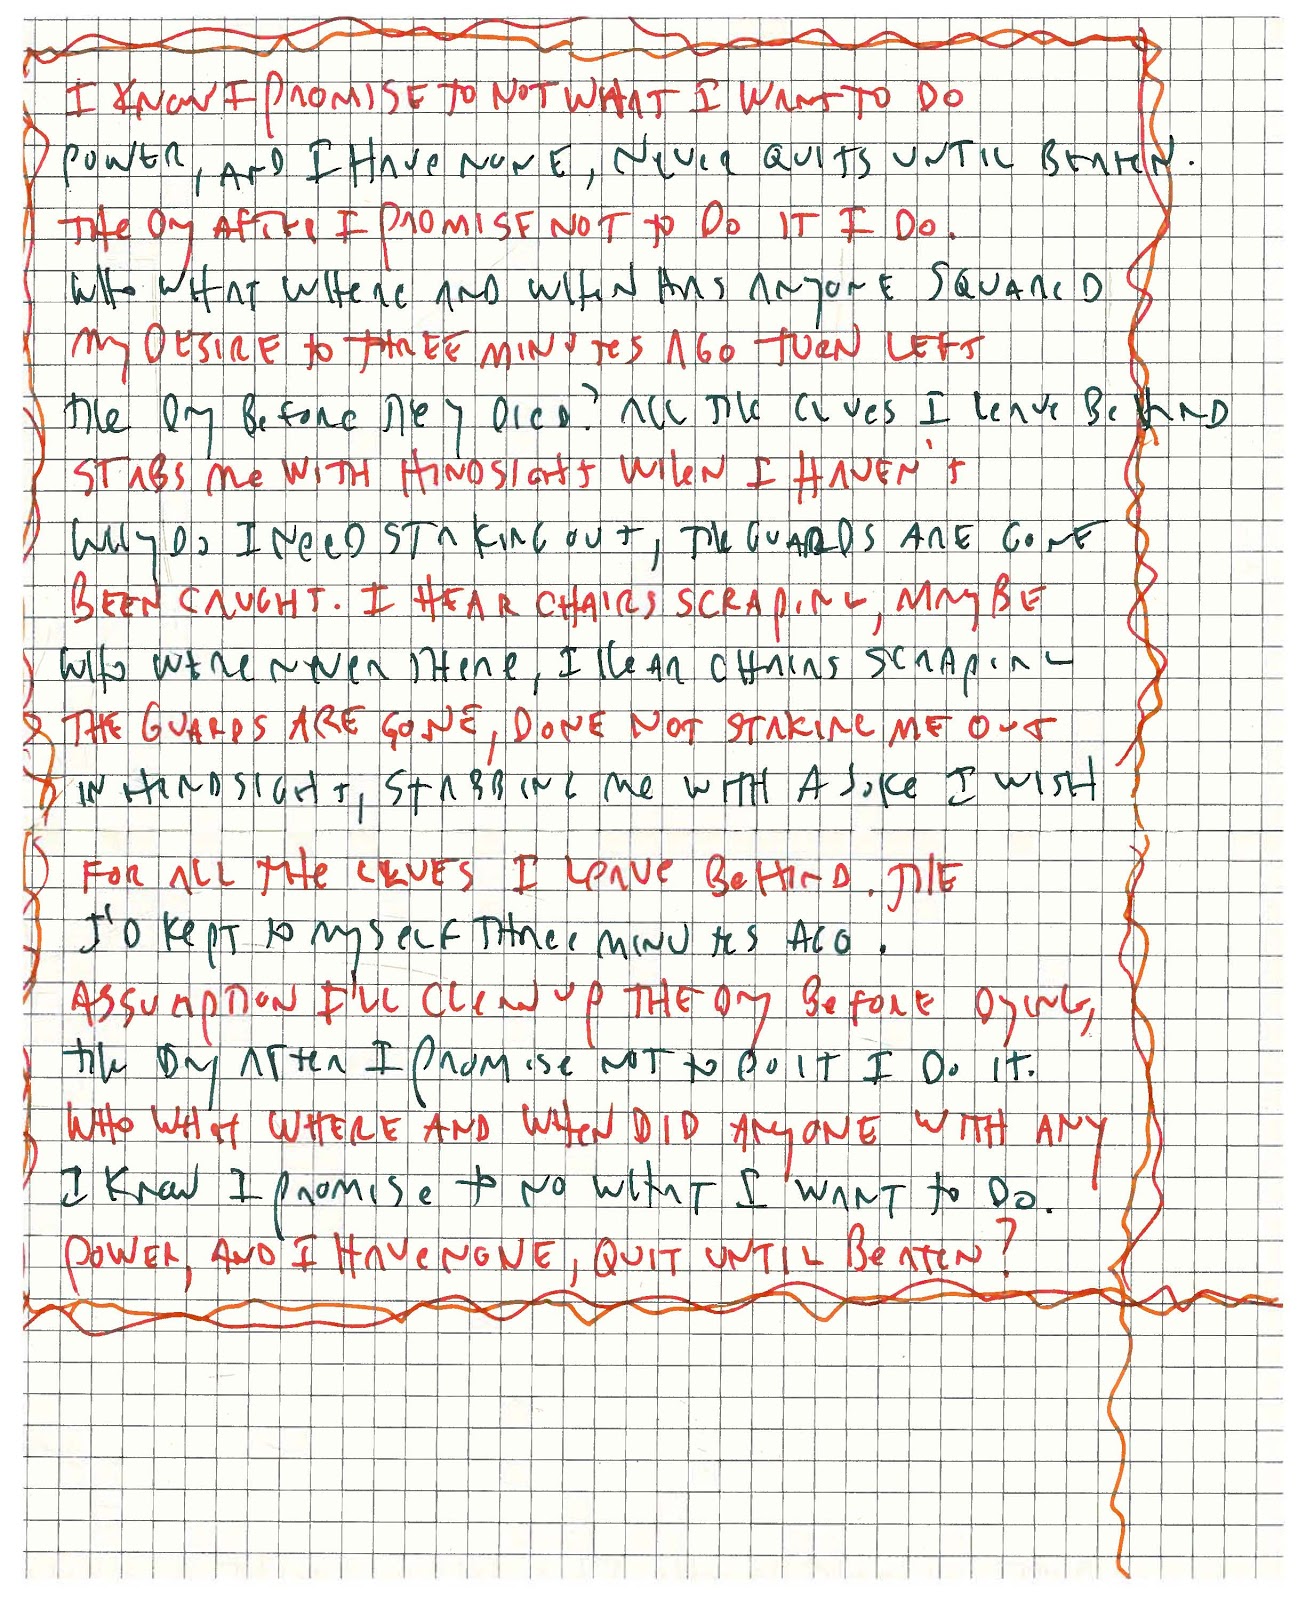 I KNOW I PROMISE TO NOT WHAT I WANT TO DO
POWER, AND I HAVE NONE, NEVER QUITS UNTIL BEATEN.
THE DAY AFTER I PROMISE NOT TO DO IT I DO.
WHO WHAT WHERE AND WHEN HAS ANYONE SQUARED
MY DESIRE TO THREE MINUTES AGO TURN LEFT
THE DAY BEFORE THEY DIED? ALL THE CLUES I LEAVE BEHIND
STABS ME WITH HINDSIGHT WHEN I HAVEN'T
WHY DO I NEED STAKING OUT, THE GUARDS ARE GONE
BEEN CAUGHT. I HEAR CHAIRS SCRAPING, MAYBE
WHO WERE NEVER THERE, I HEAR CHAINS SCRAPING
THE GUARDS ARE GONE, DONE NOT STAKING ME OUT
IN HINDSIGHT, STABBING ME WITH A JOKE I WISH
FOR ALL THE CLUES I LEAVE BEHIND. THE
I'D KEPT TO MYSELF THREE MINUTES AGO.
ASSUMPTION I'LL CLEAN UP THE DAY BEFORE DYING,
THE DAY AFTER I PROMISE NOT TO DO IT I DO IT.
WHO WHAT WHERE AND WHEN DID ANYONE WITH ANY
I KNOW I PROMISE TO NO WHAT I WANT TO DO.
POWER, AND I HAVE NONE, QUIT UNTIL BEATEN?